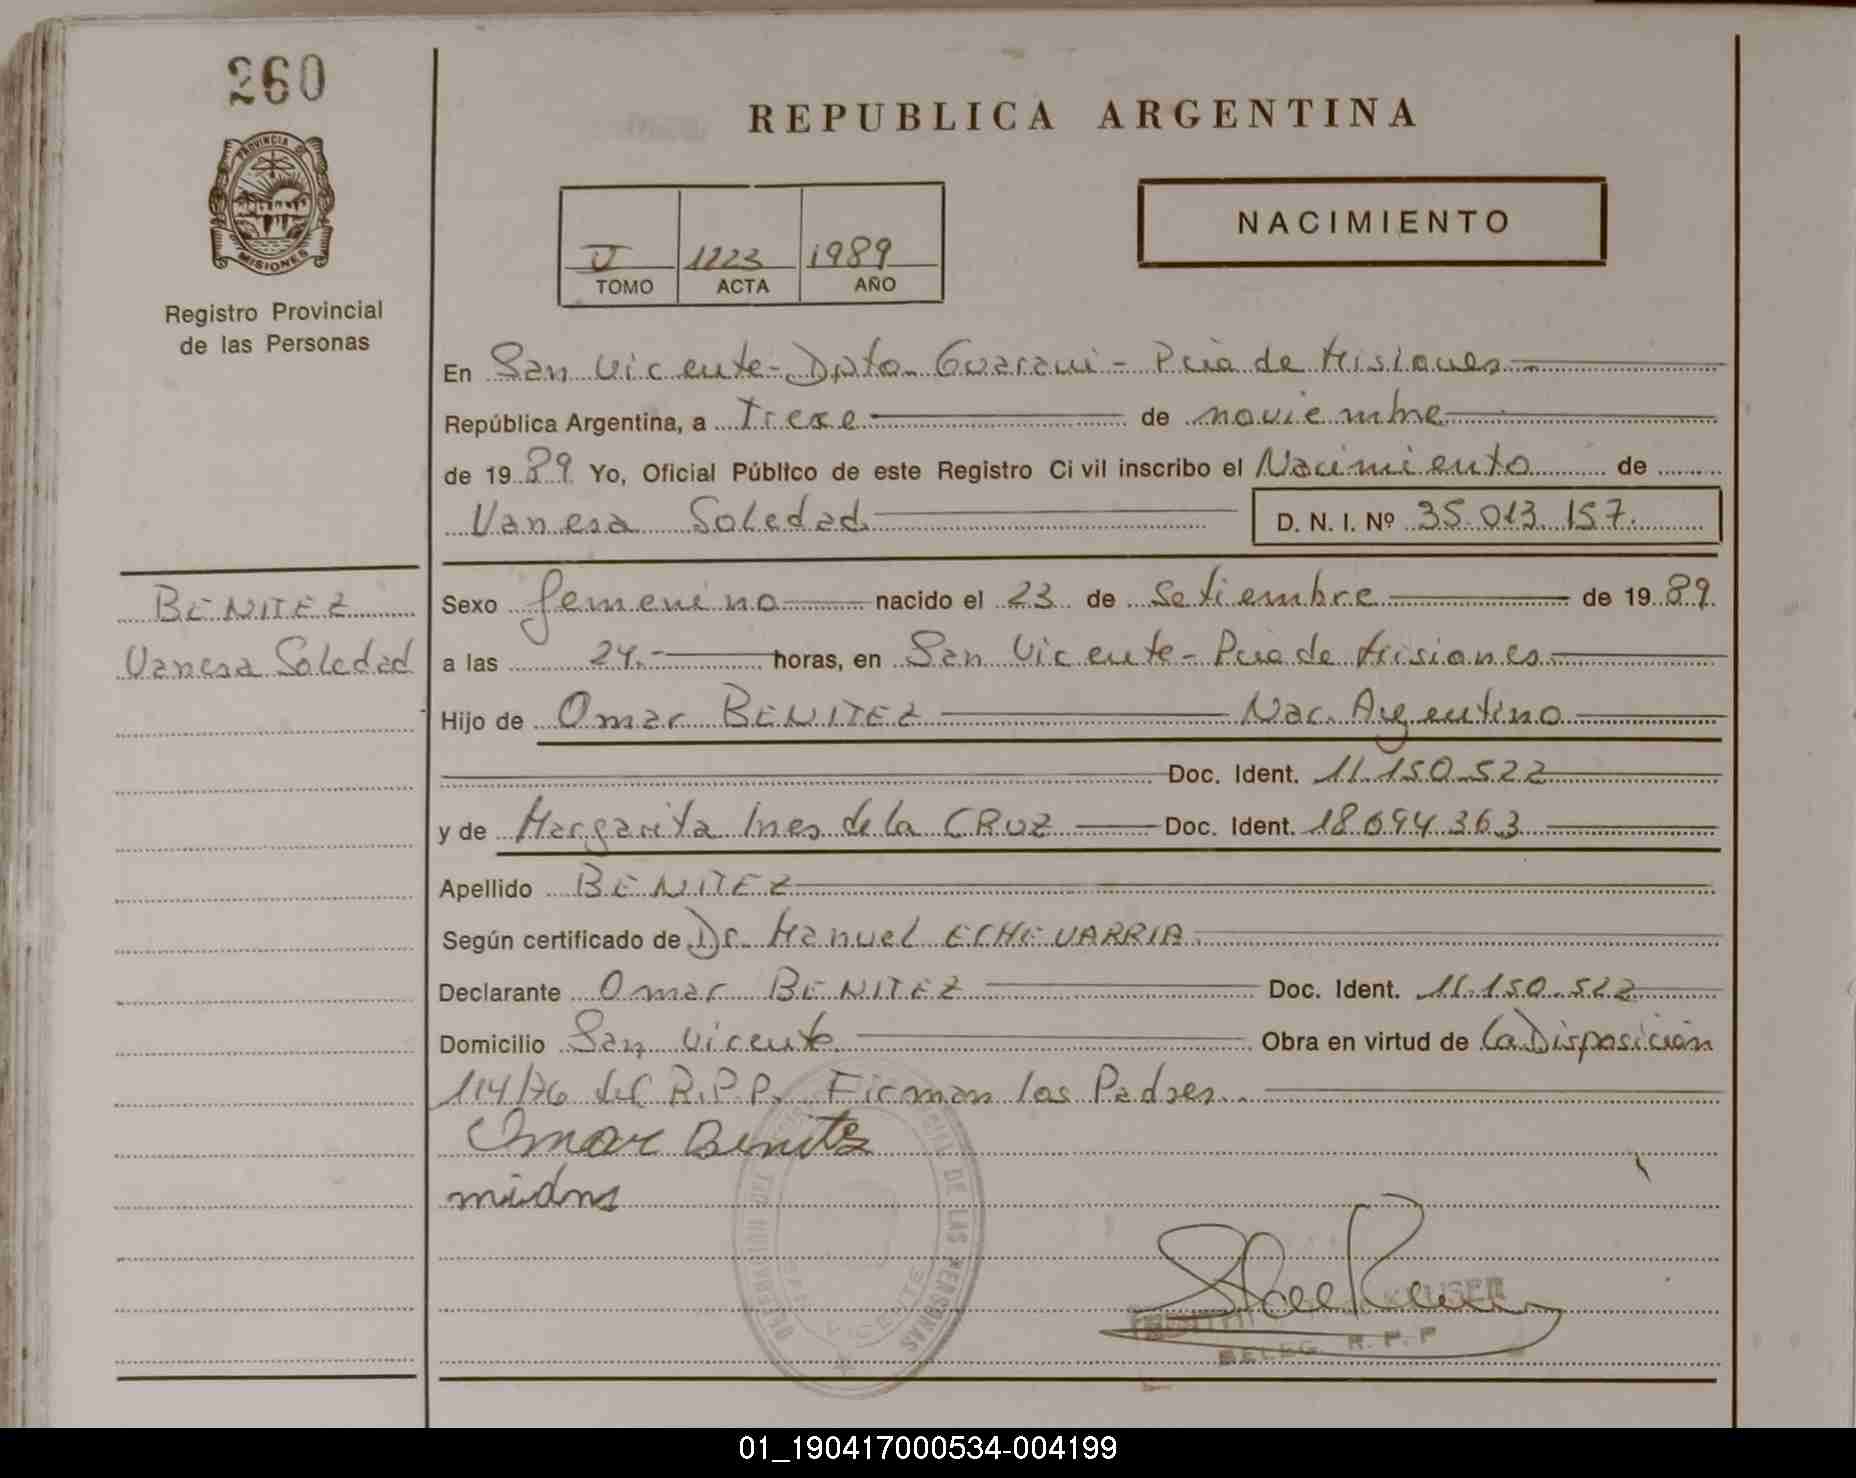 260
PROVINCIA DE
MISIONES
Registro Provincial
de las Personas
REPUBLICA ARGENTINA
NACIMIENTO
V 1223 1989
TOMO ACTA AÑO
En San Vicente - Dpto. Guarani - Pcia de Misiones
República Argentina, a Trece de noviembre
de 1989 Yo, Oficial Público de este Registro Ci vil inscribo el Nacimiento de
Vanesa Soledad. D. N. I. Nº 35.013.157.
BENITEZ
Vanesa Soledad
Sexo femenino nacido el 23 de Setiembre de 1989.
a las 24.- horas, en San Vicente - Pcia de Misiones
Hijo de Omar BENITEZ Nac. Argentino
Doc. Ident. 11.150.522
y de Margarita Ines de la CRUZ Doc. Ident. 18.094.363
Apellido BENITEZ
Según certificado de Dr. Manuel ECHEVARRIA.
Declarante Omar BENITEZ Doc. Ident. 11.150.522
Domicilio San Vicente Obra en virtud de la Disposición
114/76 del R.P.P. Firman los Padres.
Omar Benitez
DE LAS PERSONAS
VICENTE
KAUSER
DELEG. R. P. P
01_190417000534-004199